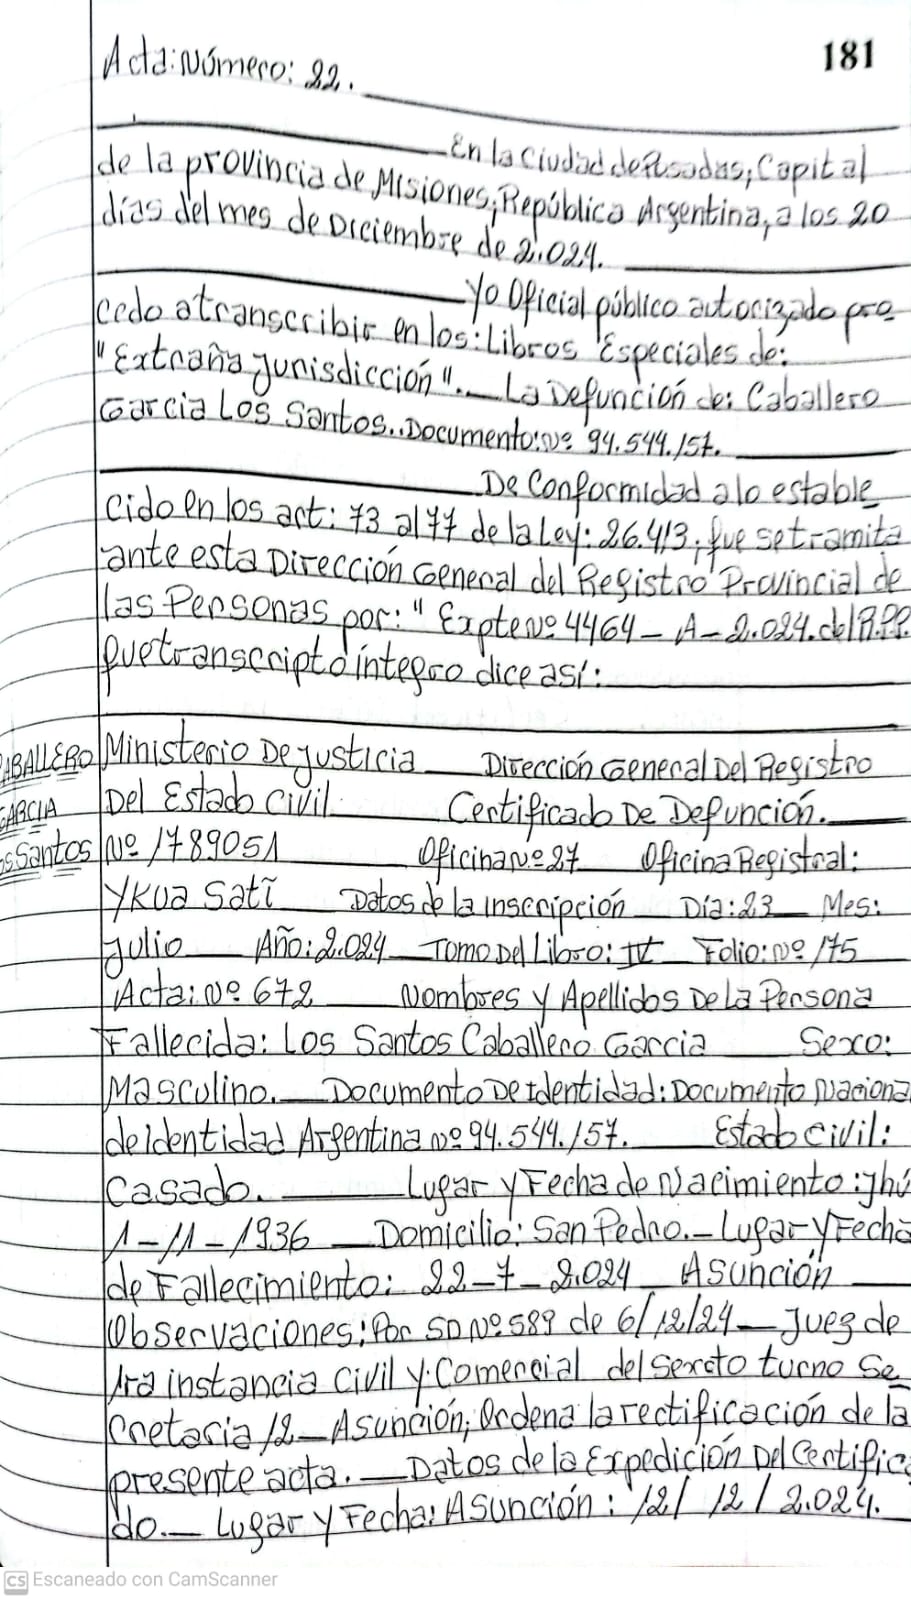 181
Acta: Número: 22.
En la Ciudad de Posadas, Capital
de la provincia de Misiones, República Argentina, a los 20
días del mes de Diciembre de 2.024.
Yo Oficial público autorizado pro
cedo a transcribir en los: Libros Especiales de:
"Extraña Jurisdicción".__ La Defunción de: Caballero
Garcia Los Santos.. Documento: Nº 94.544.157.
De Conformidad a lo estable
cido en los art: 73 al 77 de la Ley: 26.413, que se tramita
ante esta Dirección General del Registro Provincial de
las Personas por: "Expte Nº 4464 - A - 2.024. del R.PP.
que transcripto íntegro dice así:
CABALLERO
GARCIA
Los Santos
Ministerio De Justicia __ Dirección General Del Registro
Del Estado Civil. Certificado De Defunción.
Nº 1789051 Oficina Nº 27 Oficina Registral:
Ykua Satĩ __ Datos de la inscripción Día: 23 __ Mes:
Julio __ Año: 2.024 __ Tomo Del Libro: IV __ Folio: Nº 175
Acta: Nº 672 __ Nombres y Apellidos De la Persona
Fallecida: Los Santos Caballero Garcia __ Sexo:
Masculino. __ Documento De Identidad: Documento Naciona
de identidad Argentina Nº 94.544.157. Estado Civil:
Casado. __ Lugar y Fecha de Nacimiento: Jhú
1-11-1936 __ Domicilio: San Pedro. - Lugar y Fecha
de Fallecimiento: 22-7-2.024 __ Asunción __
Observaciones: Por SD Nº 589 de 6/12/24 __ Juez de
1ra instancia Civil y Comercial del Sexto turno Se
cretaria 12 __ Asunción, Ordena la rectificación de la
presente acta. __ Datos de la Expedición Del Certifica
do. __ Lugar y Fecha: Asunción: 12/12/2.024.
CS Escaneado con CamScanner